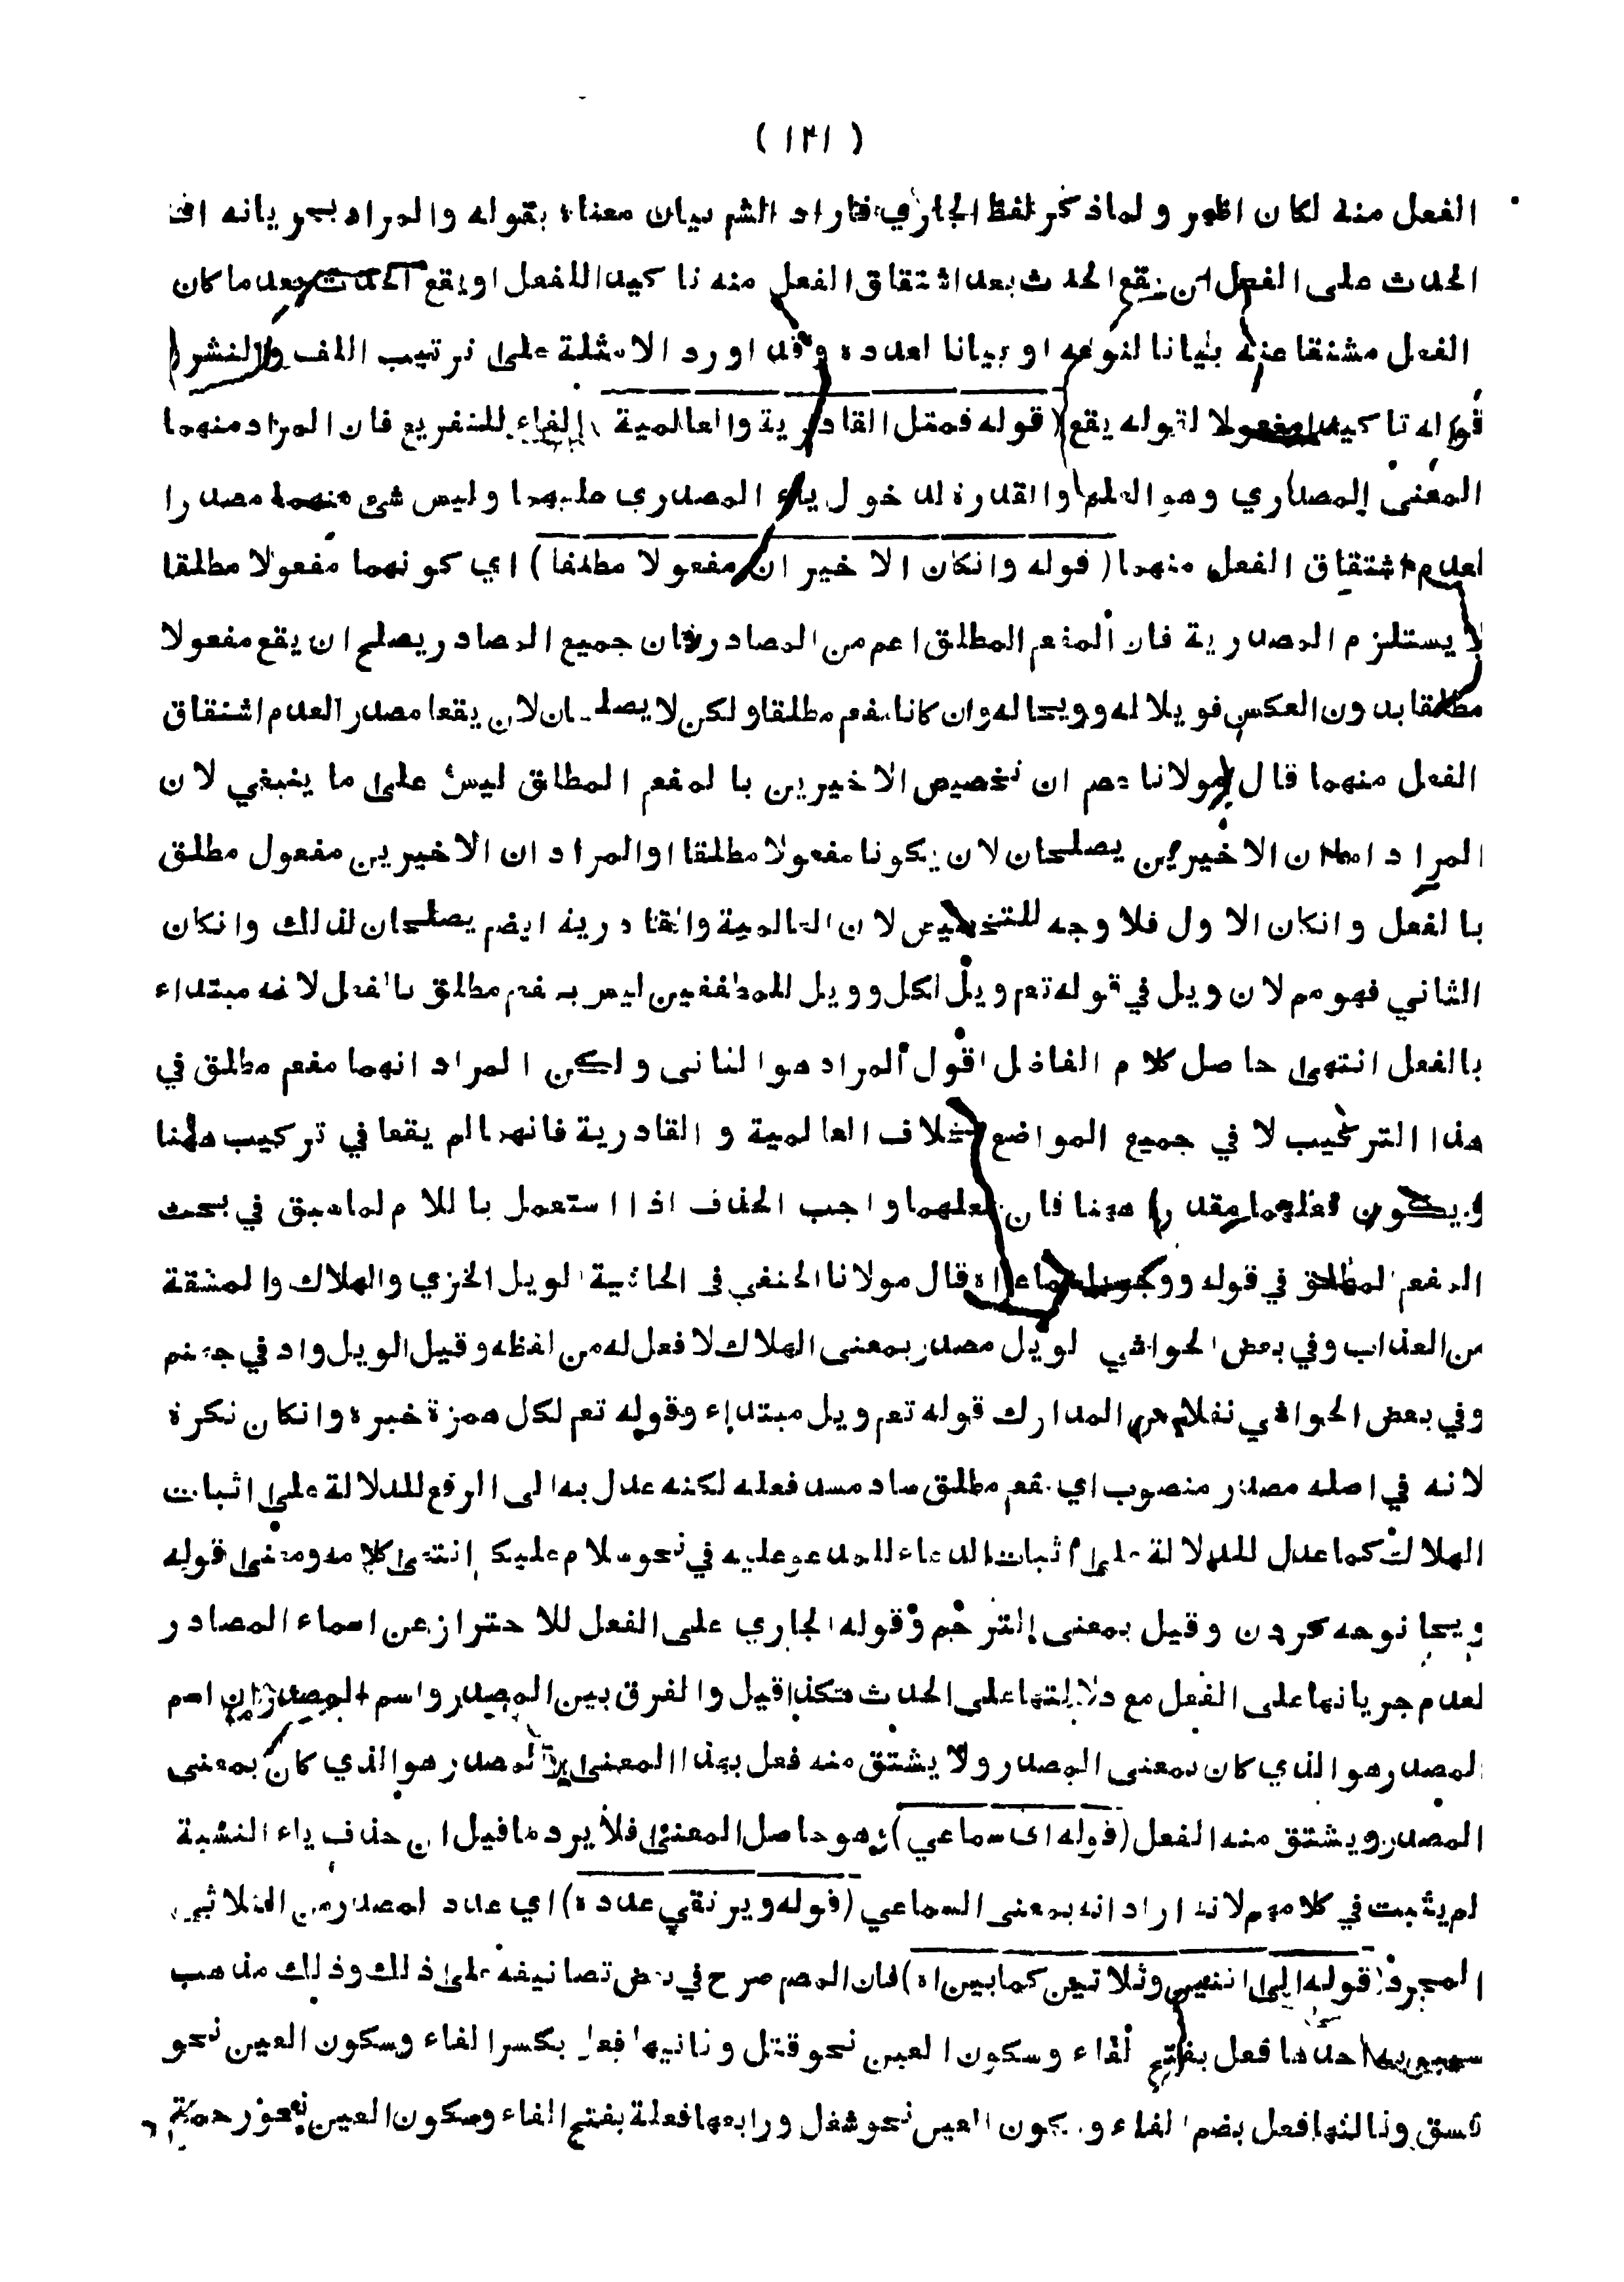 ( ١٢١ )
الفعل منه لكان اظهر و لما ذكر لفظ الجاري فاراد الشم بيان معناه بقوله والمراد بجريانه اف
الحدث على الفعل ان يقع الحدث بعد اشتقاق الفعل منه تا كيدا للفعل او يقع الحدث بعد ما كان
الفعل مشتقا عنه بيانا لنوعه او بيانا لعدده وقد اورد الامثلة على ترتيب اللف والنشر
قوله تا كيدا لقوله يقع ( قوله فمثل القادرية والعالمية ) الفاء للتفريع فان المراد منهما
المعنى المصدري وهو العلم والقدرة لدخول ياء المصدري عليهما وليس شئ منهما مصدرا
لعدم اشتقاق الفعل منهما ( قوله وانكان الاخيران مفعولا مطلقا ) اي كونهما مفعولا مطلقا
لا يستلزم المصدرية فان المفعم المطلق اعم من المصادر فان جميع المصادر يصلح ان يقع مفعولا
مطلقا بدون العكس فويلا له وويحا له وان كانا مفعم مطلقا ولكن لا يصلحان لان يقعا مصدرا لعدم اشتقاق
الفعل منهما قال مولانا عصم ان تخصيص الاخيرين با لمفعم المطلق ليس على ما ينبغي لان
المراد اما ان الاخيرين يصلحان لان يكونا مفعولا مطلقا او المراد ان الاخيرين مفعول مطلق
بالفعل وانكان الاول فلا وجه للتخصيص لان العالمية والقادرية ايضم يصلحان لذلك وانكان
الثاني فهو مم لان ويل في قوله تعم ويل لكل وويل للمطففين ليس بمفعم مطلق بالفعل لانه مبتداء
بالفعل انتهى حاصل كلام الفاضل اقول المراد هو الثاني ولكن المراد انهما مفعم مطلق في
هذا التركيب لا في جميع المواضع بخلاف العالمية و القادرية فانهما لم يقعا في تركيب ههنا
ويكون فعلهما مقدرا ههنا فان فعلهما واجب الحذف اذا استعمل باللام لما سبق في بحث
المفعم المطلق في قوله ووجوبا سماعا اه قال مولانا الحنفي في الحاشية الويل الخزي والهلاك والمشقة
من العذاب وفي بعض الحواشي الويل مصدر بمعنى الهلاك لا فعل له من لفظه وقيل الويل واد في جهنم
وفي بعض الحواشي نقلا من المدارك قوله تعم ويل مبتداء وقوله تعم لكل همزة خبره وانكان نكرة
لانه في اصله مصدر منصوب اي مفعم مطلق ساد مسد فعله لكنه عدل به الى الرفع للدلالة على اثبات
الهلاك كما عدل للدلالة على اثبات الدعاء للمدعو عليه في نحو سلام عليك انتهى كلامه ومعنى قوله
ويحا نوحه كردن وقيل بمعنى الترحم وقوله الجاري على الفعل للاحتراز عن اسماء المصادر
لعدم جريانها على الفعل مع دلالتها على الحدث هكذا قيل والفرق بين المصدر واسم المصدر ان اسم
المصدر هو الذي كان بمعنى المصدر ولا يشتق منه فعل بهذا المعنى والمصدر هو الذي كان بمعنى
المصدر ويشتق منه الفعل ( قوله اى سماعي ) وهو حاصل المعنى فلا يرد ما قيل ان حذف ياء النسبة
لم يثبت في كلامهم لانه اراد انه بمعنى السماعي ( قوله ويرتقي عدده ) اي عدد المصدر من الثلاثي
المجرد ( قوله الى اثنين وثلاثين كما بين اه ) فان المصم صرح في بعض تصانيفه على ذلك وذلك مذهب
سيبويه احدها فعل بفتح الفاء وسكون العين نحو قتل وثانيها فعل بكسر الفاء وسكون العين نحو
فسق وثالثها فعل بضم الفاء وسكون العين نحو شغل ورابعها فعلة بفتح الفاء وسكون العين نحو رحمة